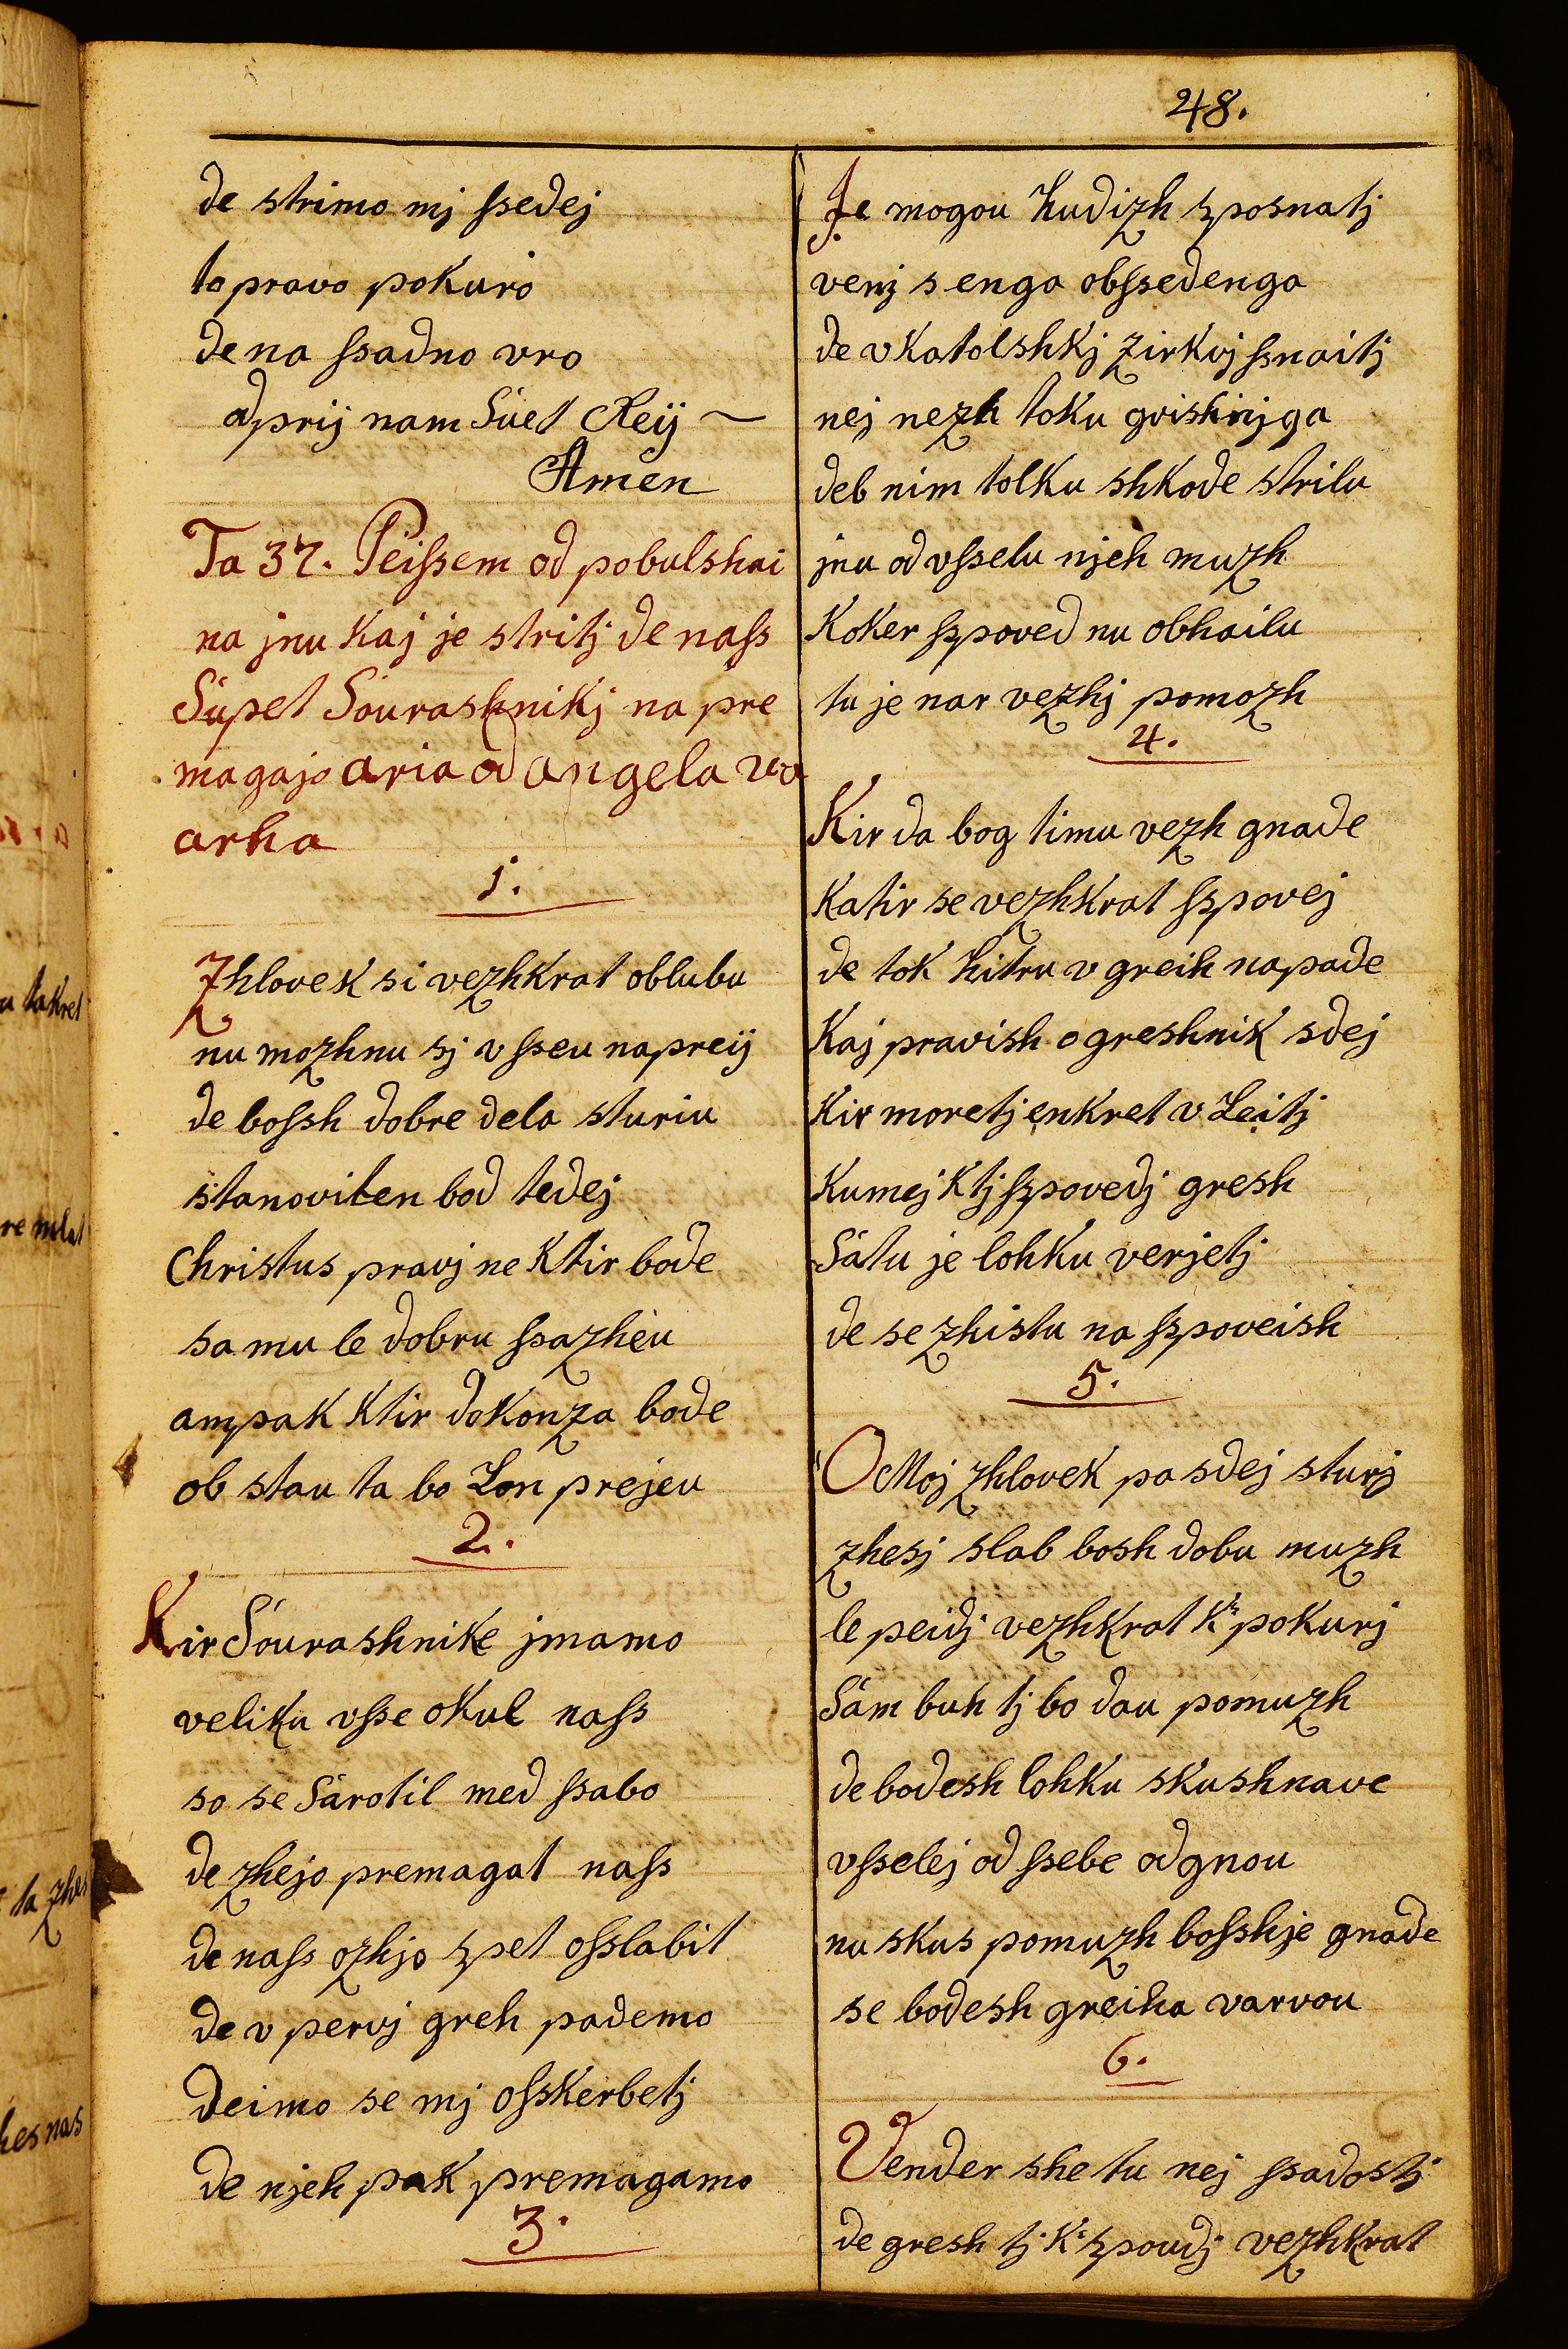 48.
de strimo mj ſsedej
to pravo pokuro
de na ſsadno vro
odprij nam Súet Reij ~
Amen
Ta 37. Peiſsem od pobulshai
na jnu kaj je stritj de naſs
Súpet Sourashnikj na pre
magajo aria od angela va
arha
1.
Zhlovek si vezhkrat oblubu
nu mozhnu sj vſseu napreij
de boſsh dobre dela sturiu
stanoviten bod tedej
Christus pravj ne ktir bode
samu le dobru ſsazheu
ampak ktir dokonza bode
ob stau ta bo Lon prejeu
2.
Kir Sourashnike jmamo
veliku vſse okul naſs
so se Sárotil med ſsabo
de zhejo premagat naſs
de naſs ozhjo spet oſslabit
de v pervj greh pademo
deimo se mj oſskerbetj
de njeh pak premagamo
3.
Je mogou hudizh sposnatj
venj s enga obſsedenga
de v katolshkj zirkvj ſsnaitj
nej nezh toku grishnjga
deb nim tolku shkode strilu
jnu od vſselu njeh muzh
koker ſspoved nu obhailu
tu je nar vezhj pomozh
4.
Kir da bog timu vezh gnade
katir se vezhkrat ſspovej
de tok hitru v greih napade
kaj pravish o greshnik sdej
kir moretj enkret v Leitj
kumej ktj ſspovedj gresh
Sátu je lohku verjetj
de se zhistu na ſspoveish
5.
O Moj zhlovek pa sdej sturj
zhesj slab bosh dobu muzh
le peidj vezhkrat k' pokurj
Sám buh tj bo dau pomuzh
de bodesh lohku skushnave
vſselej od ſsebe odgnou
nu skus pomuzh boſshje gnade
se bodesh greiha varvou
6.
Vender she tu nej ſsadostj
de gresh tj k' spoudj vezhkrat